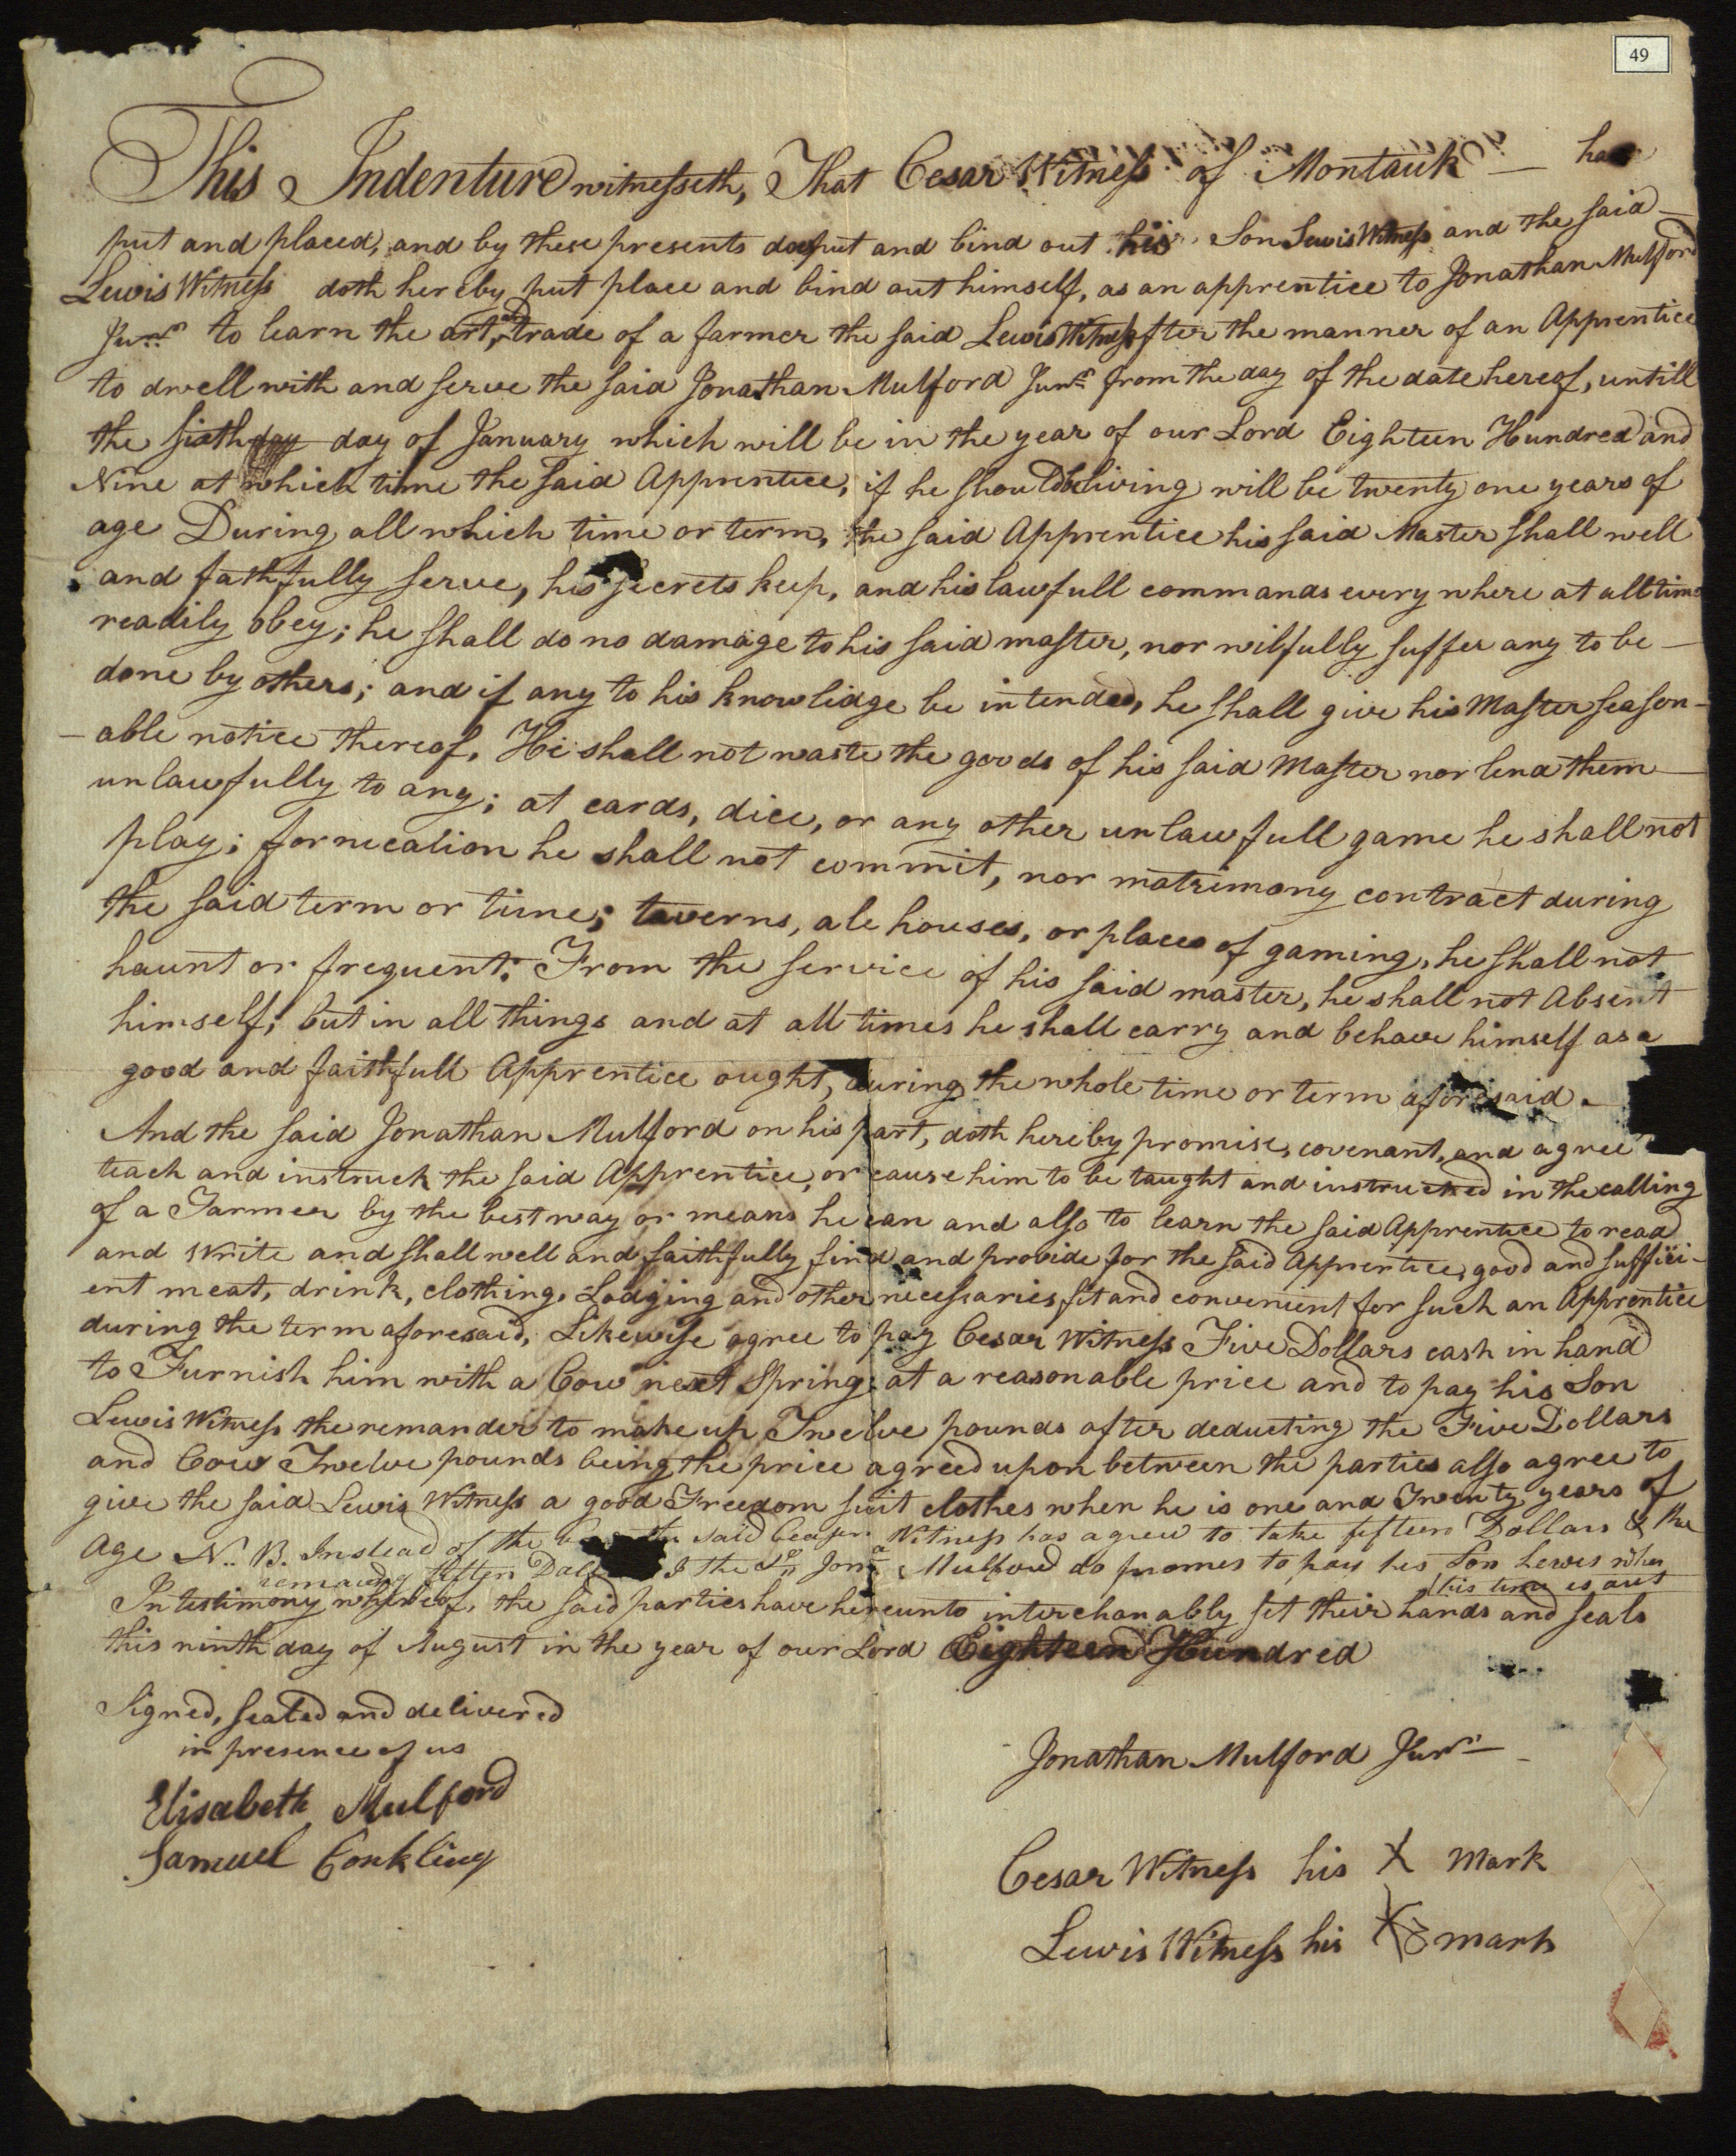 49
This Indenture witnesseth, That Cesar Witness of Montauk — has
put and placed, and by these presents doth put and bind out his Son Lewis Witness and the said —
Lewis Witness doth hereby put place and bind out himself, as an apprentice to Jonathan Mulford
Junr to learn the art, and trade of a farmer the said Lewis Witness after the manner of an Apprentice
to dwell with and serve the said Jonathan Mulford Junr from the day of the date hereof, untill
the sixth day day of January which will be in the year of our Lord Eighteen Hundred and
Nine at which time the said Apprentice, if he should be living will be twenty one years of
age During all which time or term, the said Apprentice his said Master shall well
and fathfully serve, his secrets keep, and his lawfull commands every where at all time
readily obey; he shall do no damage to his said master, nor wilfully suffer any to be —
done by others; and if any to his knowlidge be intended, he shall give his Master season-
-able notice thereof. He shall not waste the goods of his said Master nor lend them —
unlawfully to any; at cards, dice, or any other unlawfull game he shall not
play; fornication he shall not commit, nor matrimony contract during
the said term or time; taverns, ale houses, or places of gaming, he shall not
haunt or frequent; From the service of his said master, he shall not Absent
himself; but in all things and at all times he shall carry and behave himself as a
good and faithfull Apprentice ought, during the whole time or term aforesaid. —
And the said Jonathan Mulford on his part, doth hereby promise, covenant, and agree
teach and instruck the said Apprentice, or cause him to be taught and instructed in the calling
of a Farmer by the best way or means he can and also to learn the said Apprentice to read
and write and shall well and faithfully find and provide for the said Apprentice, good and suffici-
ent meat, drink, clothing, Lodging and other necessaries fit and convenient for such an Apprentice
during the term aforesaid, Likewise agree to pay Cesar Witness Five Dollars cash in hand
to Furnish him with a Cow next Spring at a reasonable price and to pay his Son
Lewis Witness the remander to make up Twelve pounds after deducting the Five Dollars
and Cow Twelve pounds being the price agreed upon between the parties also agree to
give the said Lewis Witness a good Freedom suit clothes when he is one and Twenty years of
Age N. B. Instead of the the said Ceasar Witness has agreed to take fifteen Dollars & the
remaining fifteen I the sd Jona Mulford do promes to pay his Son Lewes when
his time is out
In testimony whereof, the said parties have hereunto interchanably set their hands and seals
this ninth day of August in the year of our Lord Eighteen Hundred
Signed, sealed and delivered
in presence of us
Elisabeth Mulford
Samuel Conkling
Jonathan Mulford Junr —
Cesar Witness his X Mark
Lewis Witness his X mark